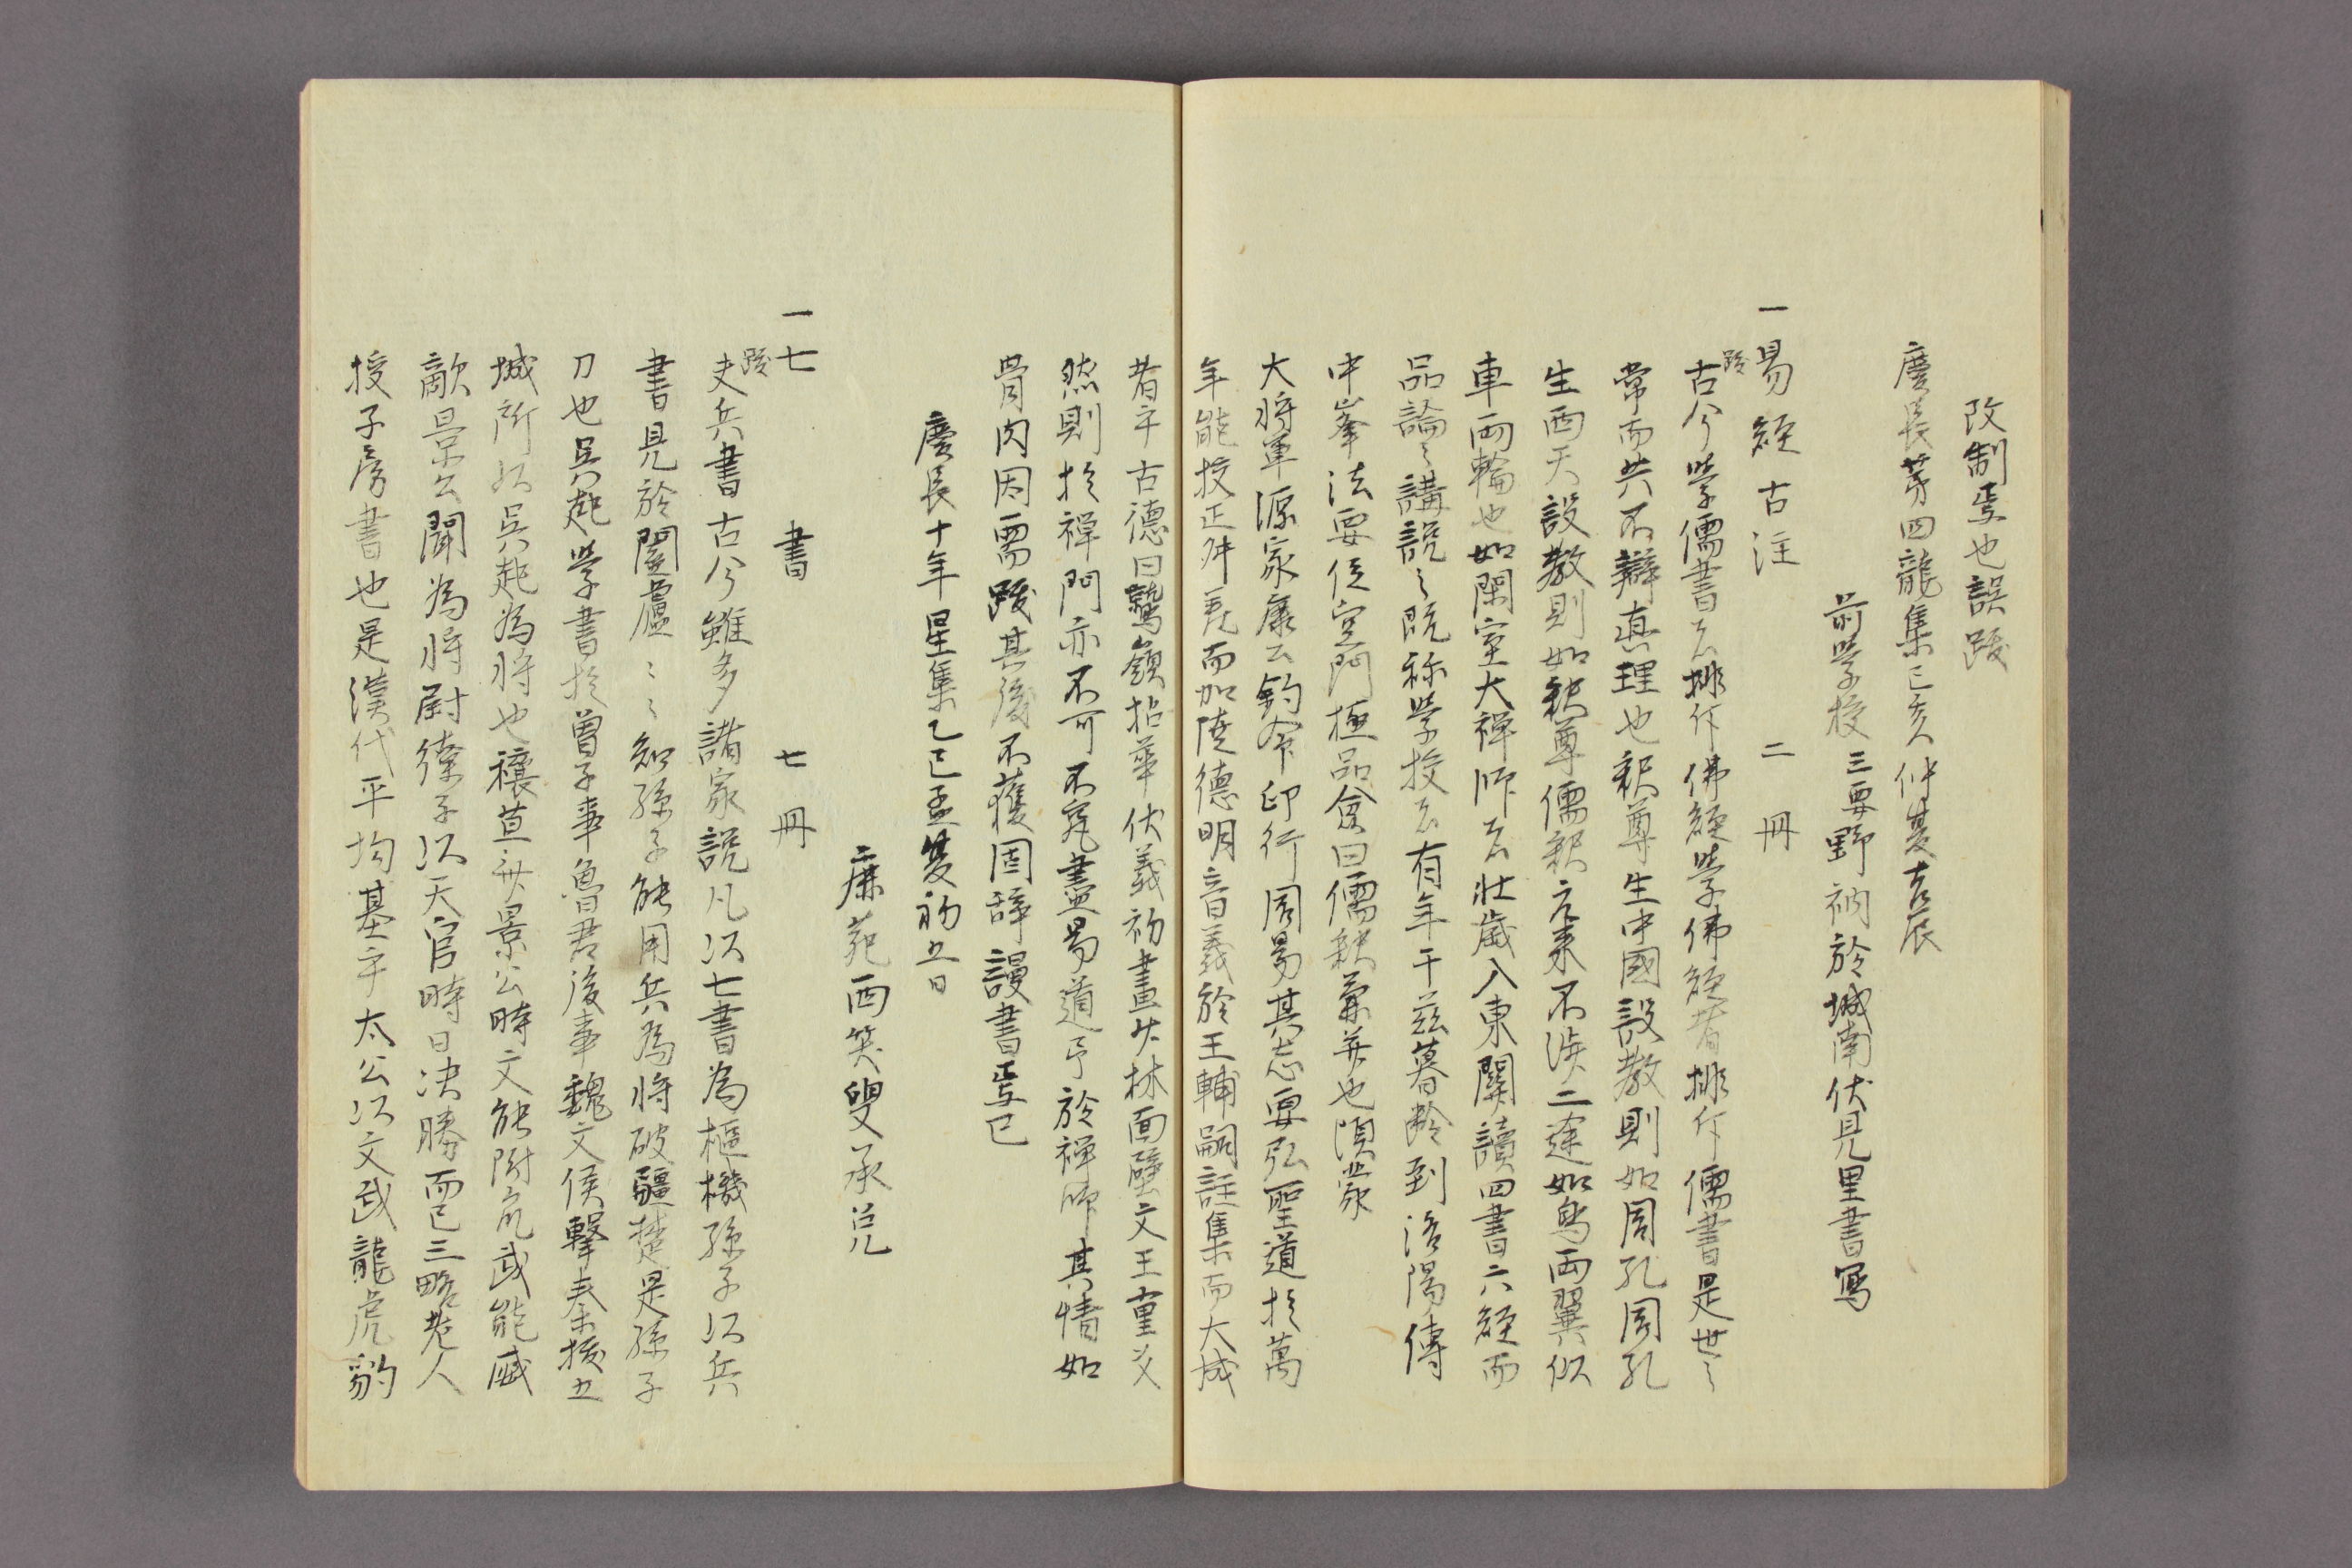 改制焉也誤跋
慶長第四龍集己亥仲夏吉辰
前學校三要野衲於城南伏見里書寫
一易經古注　二冊
跋
古今學儒書者排斥佛經學佛經者排斥儒書是世之
常而共不辯真理也釈尊生中國設教則如周孔周孔
生西天設教則如釈尊儒釈元來不渉二途如鳥兩翼似
車両輪也如閑室大禅師者壮歳入東關讀四書六經而
品論之講説之既称学校者有年于茲暮齡到洛陽傳
中峯法要従空門極品僉曰儒釈兼并也頃蒙
大将軍源家康公鈞命印行周易其志要弘聖道於萬
年能校正舛差而加陸德明音義於王輔嗣註集而大成
者乎古德曰鷲嶺拈華伏義初畫少林面壁文王重爻
然則於禅門亦不可不究盡易道乎於禅師其情如
骨肉因需跋其後不獲固辞謾書焉已
慶長十年星集乙巳孟夏初五日
鹿苑西笑叟承兌
一七　書　七冊
跋
夫兵書古今雖多諸家説凡以七書為樞機孫子以兵
書見於闔廬〻〻知孫子能用兵為将破彊楚是孫子
力也呉起學書於曽子事魯君後事魏文侯擊秦抜五
城所以呉起為将也穰苴齊景公時文能附衆武能威
敵景公聞為将尉繚子以天官時日決勝而已三略老人
授子房書也是漢代平均基乎太公以文武龍虎豹